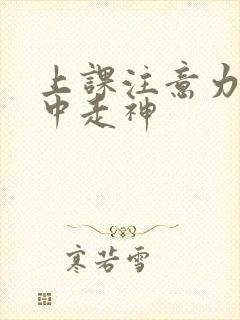 上課注意力
中走神
寒若雪